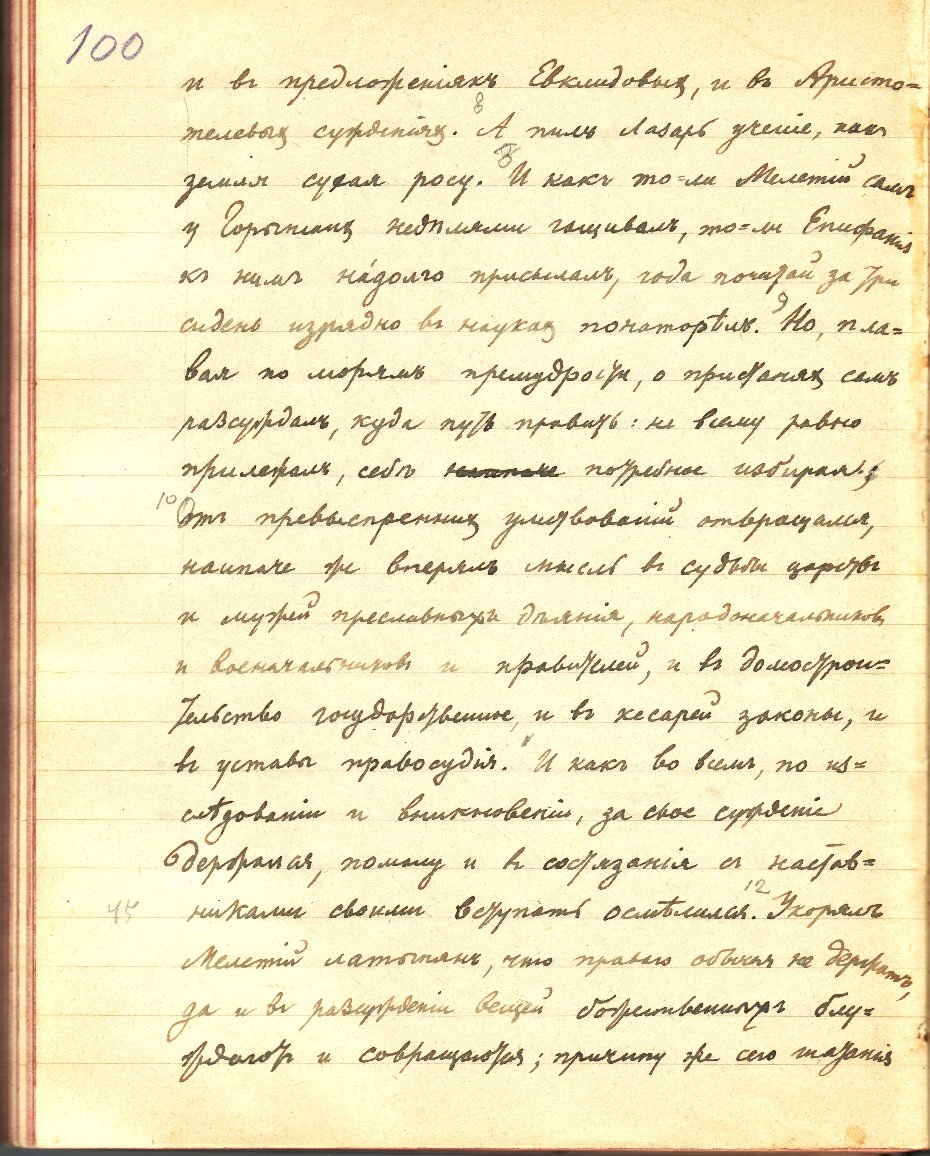 100
и въ предложенiяхъ Евклидовыхъ, и въ Аристо=
телевыхъ сужденiяхъ. 8 А пилъ Лазарь ученiе, какъ
земля сухая росу. 8 И какъ то=ли Мелетiй самъ
у Горыпиныхъ недѣлями гащивалъ, то=ли Епифанiя
къ нимъ на́долго присылалъ, года почитай за три
сидень изрядно въ наукахъ понаторѣлъ. 9 Но, пла=
вая по морямъ премудрости, о пристаняхъ самъ
разсуждалъ, куда путь править: не всему равно
прилежалъ, себѣ потребное избиралъ;
10 Отъ превыспреннихъ умствованiй отвращался,
наипаче же вперялъ мысль въ судьбы царствъ
и мужей преславныхъ дѣянiя, народоначальниковъ
и военачальниковъ и правителей, и въ домострои=
тельство государственное, и въ кесарей законы, и
въ уставы правосудiя. 11 И какъ во всемъ, по из=
слѣдованiи и вникновенiи, за свое сужденiе
держался, помалу и въ состязанiя съ настав=
45 никами своими вступать осмѣлился. 12 Укорялъ
Мелетiй латынянъ, что праваго обычая не держатъ,
да и въ разсужденiи вещей божественныхъ блу=
ждаютъ и совращаются; причину же сего шатанiя